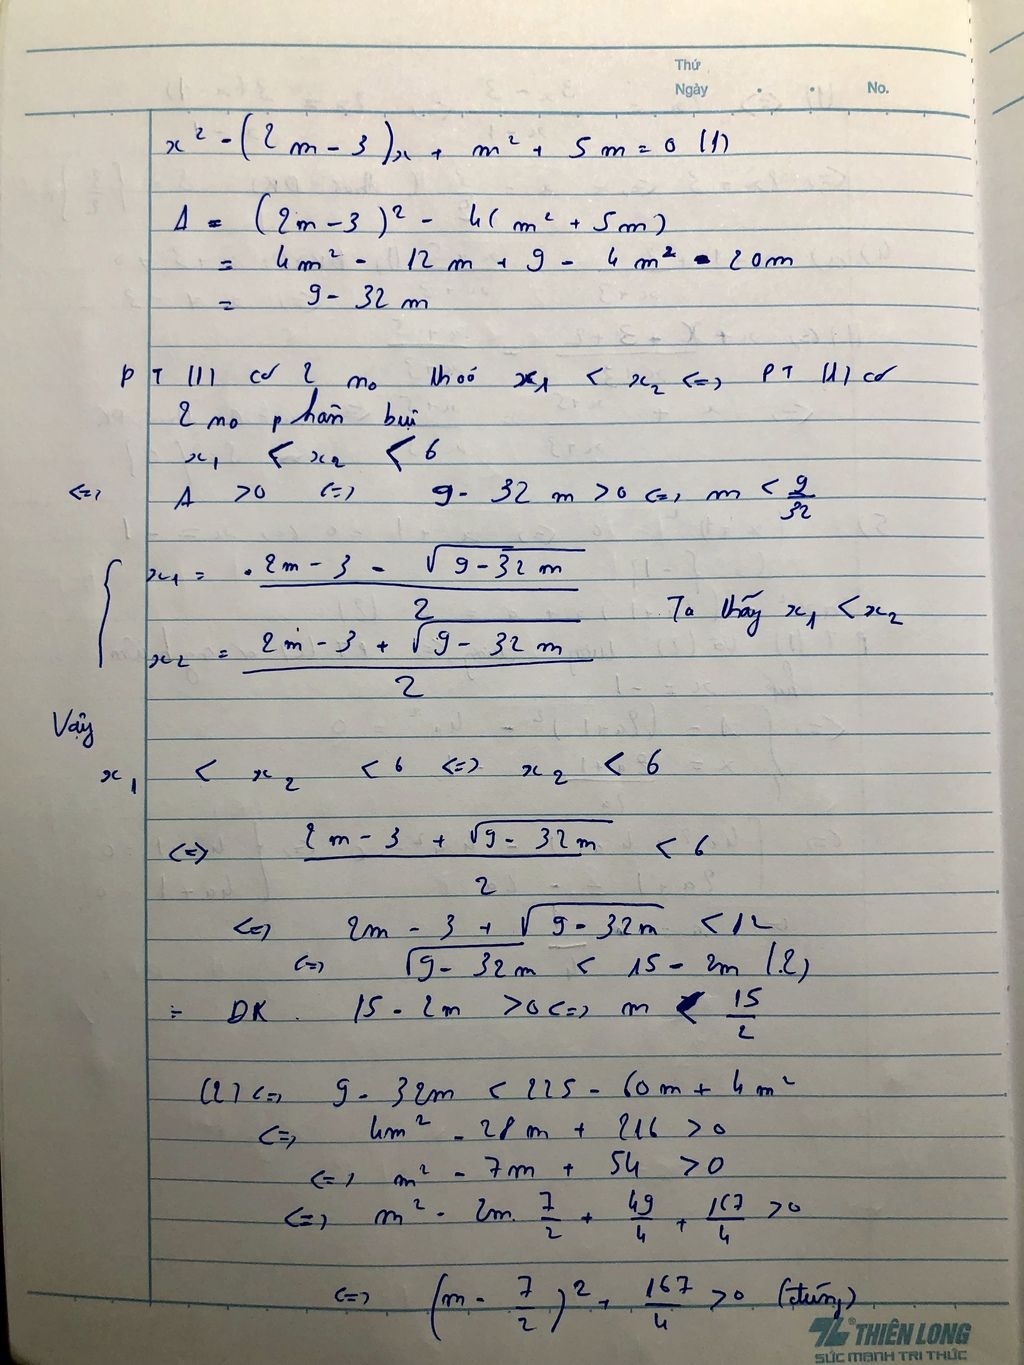 Thứ
Ngày . . No.
x² - (2m - 3)x + m² + 5m = 0 (1)
Δ = (2m - 3)² - 4(m² + 5m)
= 4m² - 12m + 9 - 4m² - 20m
= 9 - 32m
PT (1) có 2 no thoả x₁ < x₂ <=> PT (1) có
2 no phân biệt
x₁ < x₂ < 6
<=> Δ > 0 <=> 9 - 32m > 0 <=> m < 9/32
{ x₁ = (2m - 3 - √(9 - 32m))/2
Ta thấy x₁ < x₂
x₂ = (2m - 3 + √(9 - 32m))/2
Vậy
x₁ < x₂ < 6 <=> x₂ < 6
<=> (2m - 3 + √(9 - 32m))/2 < 6
<=> 2m - 3 + √(9 - 32m) < 12
<=> √(9 - 32m) < 15 - 2m (2)
ĐK. 15 - 2m > 0 <=> m < 15/2
(2) <=> 9 - 32m < 225 - 60m + 4m²
<=> 4m² - 28m + 216 > 0
<=> m² - 7m + 54 > 0
<=> m² - 2m. 7/2 + 49/4 + 167/4 > 0
<=> (m - 7/2)² + 167/4 > 0 (đúng)
TL ® THIÊN LONG
SỨC MẠNH TRI THỨC